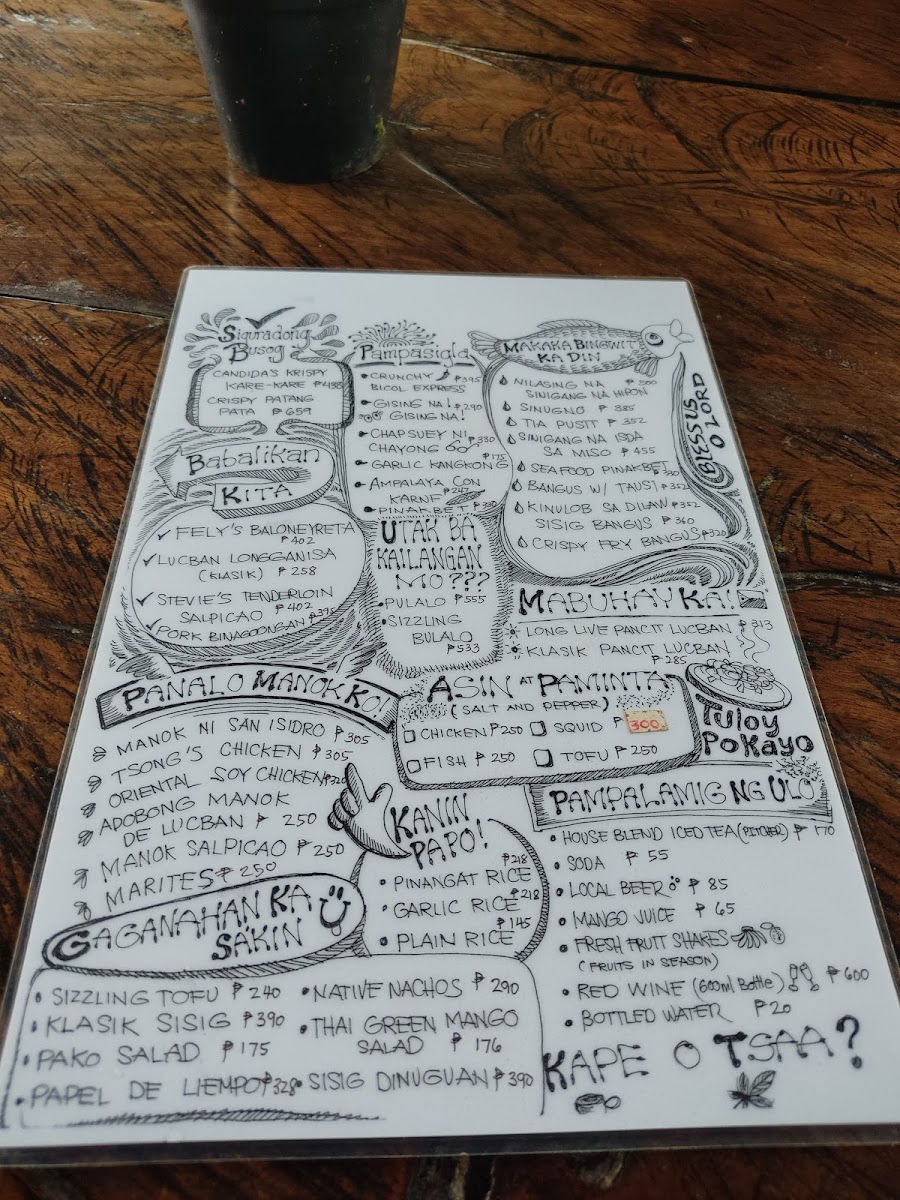 Siguradong
Busog
CANDIDA'S KRISPY
KARE-KARE ₱488
CRISPY PATANG
PATA ₱659
Babalikan
KITA
FELY'S BALONEYRETA
₱402
LUCBAN LONGGANISA
(KLASIK) ₱258
STEVIE'S TENDERLOIN
SALPICAO ₱402
PORK BINAGOONGAN ₱395
Pampasigla
CRUNCHY ₱395
BICOL EXPRESS
GISING NA! ₱290
GISING NA!
CHAPSUEY NI
CHAYONG ₱330
GARLIC KANGKONG ₱175
AMPALAYA CON
KARNE ₱247
PINAKBET
UTAK BA
KAILANGAN
MO???
PULALO ₱555
SIZZLING
BULALO
₱533
MAKAKA BINGWIT
KA DIN
NILASING NA ₱500
SINIGANG NA HIPON
SINUGNO ₱385
TIA PUSIT ₱352
SINIGANG NA ISDA
SA MISO ₱455
SEAFOOD PINAKBET
BANGUS W/ TAUSI ₱352
KINULOB SA DILAW ₱352
SISIG BANGUS ₱360
CRISPY FRY BANGUS ₱320
BLESS US
O LORD
MABUHAY KA!
LONG LIVE PANCIT LUCBAN ₱313
KLASIK PANCIT LUCBAN
₱285
Tuloy
Po Kayo
PANALO MANOK KO!
MANOK NI SAN ISIDRO ₱305
TSONG'S CHICKEN ₱305
ORIENTAL SOY CHICKEN ₱320
ADOBONG MANOK
DE LUCBAN ₱250
MANOK SALPICAO ₱250
MARITES ₱250
ASIN AT PAMINTA
(SALT AND PEPPER)
CHICKEN ₱250 SQUID ₱ 300.
FISH ₱250 TOFU ₱250
KANIN
PAPO!
₱218
PINANGAT RICE
₱218
GARLIC RICE
₱145
PLAIN RICE
PAMPALAMIG NG ULO
HOUSE BLEND ICED TEA (PITCHER) ₱170
SODA ₱55
LOCAL BEER ₱85
MANGO JUICE ₱65
FRESH FRUIT SHAKES
(FRUITS IN SEASON)
RED WINE (600ml Bottle) ₱600
BOTTLED WATER ₱20
GAGANAHAN KA
SA'KIN
SIZZLING TOFU ₱240
KLASIK SISIG ₱390
PAKO SALAD ₱175
PAPEL DE LIEMPO ₱328
NATIVE NACHOS ₱290
THAI GREEN MANGO
SALAD ₱176
SISIG DINUGUAN ₱390
KAPE O TSAA?